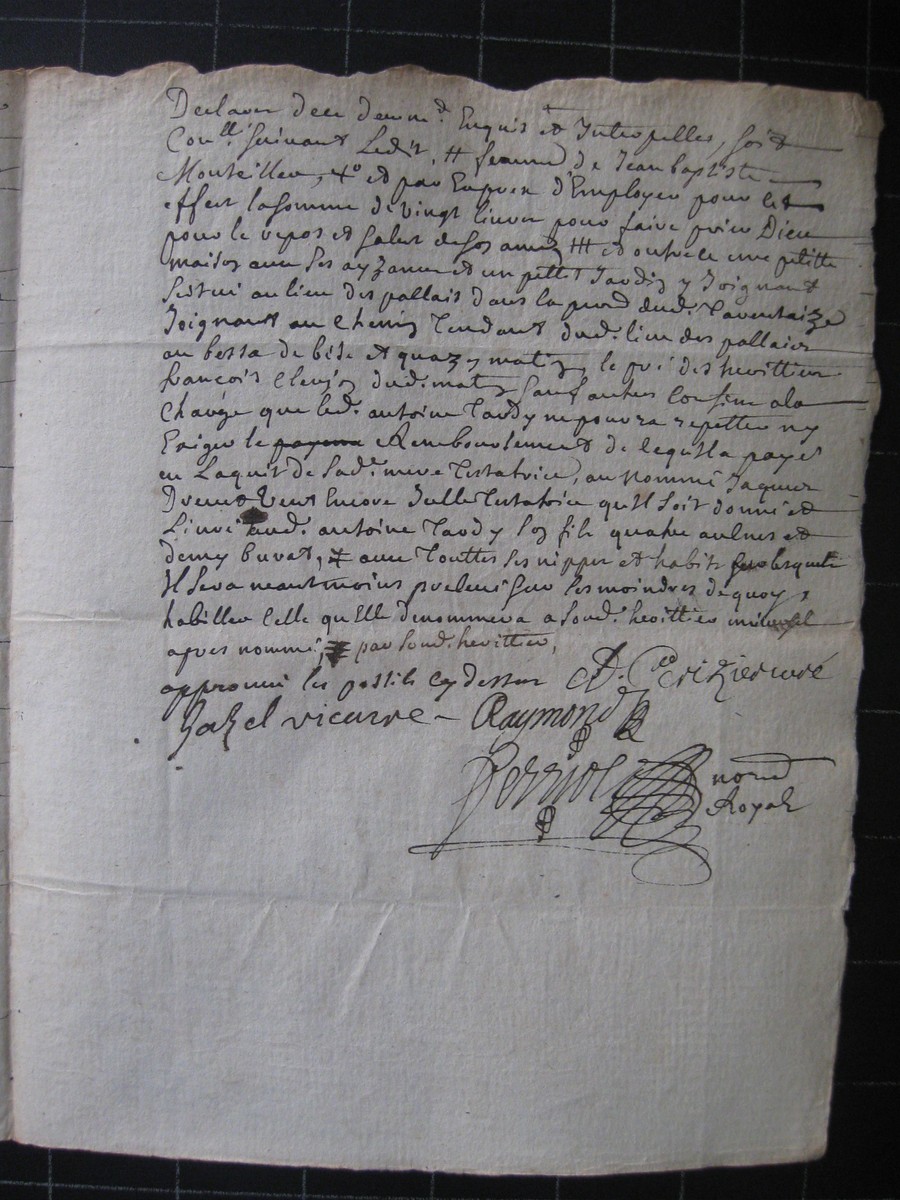 Declarer de ce deuem.t Enquis et Interpelles, soit
Con.llé suivant Ledit, # femme de Jean baptiste
Monteiller, 4° et par Exprex d'Employer pour cet
effect la somme de vingt livres pour faire prier Dieu
pour le repos et salut de son ame, ### et outre ce une petitte
maison avec ses ayzances et un petit Jardin y Joignant
scitué au lieu des pallais dans la par.d dud. Tarentaize
Joignant au chemin Tendant dud. lieu des pallaies
au bessa de bise et quazy matin, le pré des heritiers
francois clerjon dud. matin sauf autres confins a la
charge que led. antoine Tardy ne pourra repetter ny
Exiger le payem Remboursement de ce qu'il a payé
en Laquit de sad.e mere Testatrice, au nommé Jaques
Drevet Veut Encore Jcelle Testatrice qu'il soit donné et
Livré aud. antoine Tardy son fils quatre aulnes et
demy burat, # avec Touttes ses nippes et habits sur lesquels
Il sera neantmoins prelevé sur les moindres de quoy
habiller celle qu'Elle denommera a sond. heritier universel
apres nommé, # par sond. heritier,
approuvé les postils cy dessus
vicaire Raymond
Perriol no.re
Royal